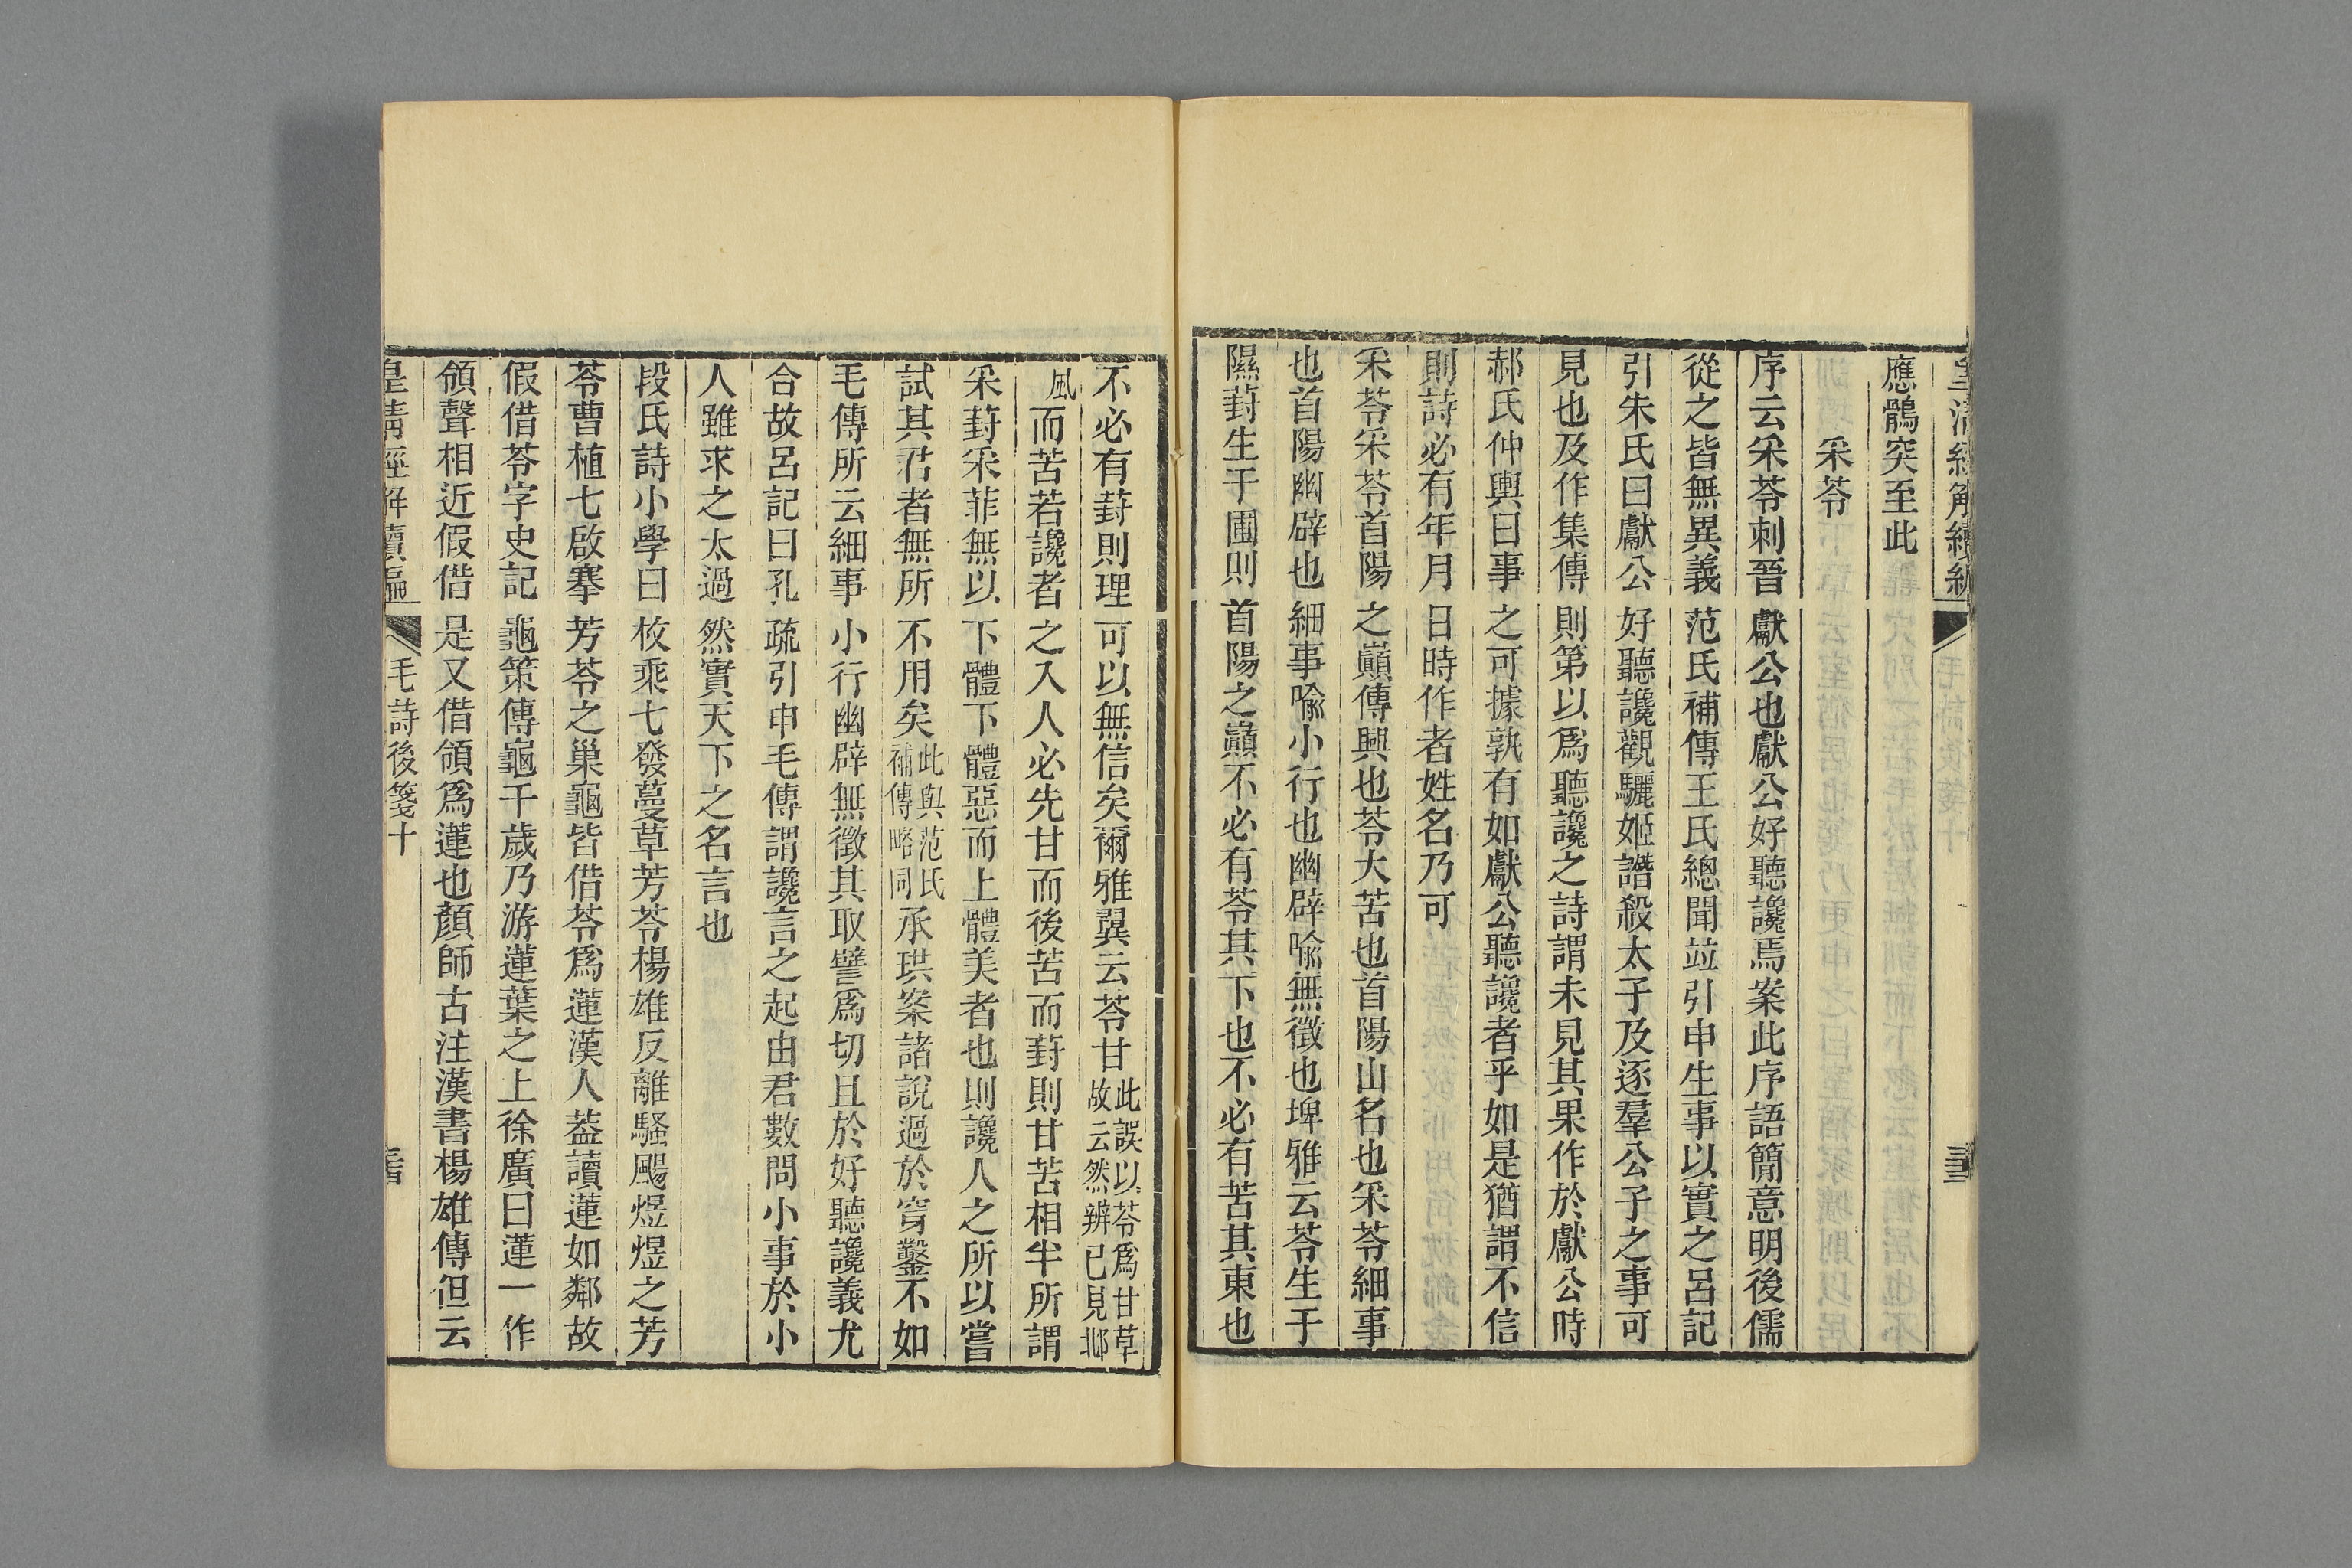 應鶻突至此
采苓
序云采苓刺晉獻公也獻公好聽讒焉案此序語簡意明後儒
從之皆無異義范氏補傳王氏總聞竝引申生事以實之呂記
引朱氏曰獻公好聽讒觀驪姬譖殺太子及逐羣公子之事可
見也及作集傳則第以爲聽讒之詩謂未見其果作於獻公時
郝氏仲輿曰事之可據孰有如獻公聽讒者乎如是猶謂不信
則詩必有年月日時作者姓名乃可
采苓采苓首陽之巔傳興也苓大苦也首陽山名也采苓細事
也首陽幽辟也細事喩小行也幽辟喩無徵也埤雅云苓生于
隰葑生于圃則首陽之巔不必有苓其下也不必有苦其東也
不必有葑則理可以無信矣爾雅翼云苓甘此誤以苓爲甘草故云然辨已見邶
風而苦若讒者之入人必先甘而後苦而葑則甘苦相半所謂
采葑采菲無以下體下體惡而上體美者也則讒人之所以嘗
試其君者無所不用矣此與范氏補傳略同承珙案諸說過於穿鑿不如
毛傳所云細事小行幽辟無徵其取譬爲切且於好聽讒義尤
合故呂記曰孔疏引申毛傳謂讒言之起由君數問小事於小
人雖求之太過然實天下之名言也
段氏詩小學曰枚乘七發蔓草芳苓楊雄反離騷颺煜煜之芳
苓曹植七啟搴芳苓之巢龜皆借苓爲蓮漢人葢讀蓮如鄰故
假借苓字史記龜策傳龜千歲乃游蓮葉之上徐廣曰蓮一作
領聲相近假借是又借領爲蓮也顏師古注漢書楊雄傳但云
皇淸經解續編 毛詩後箋十